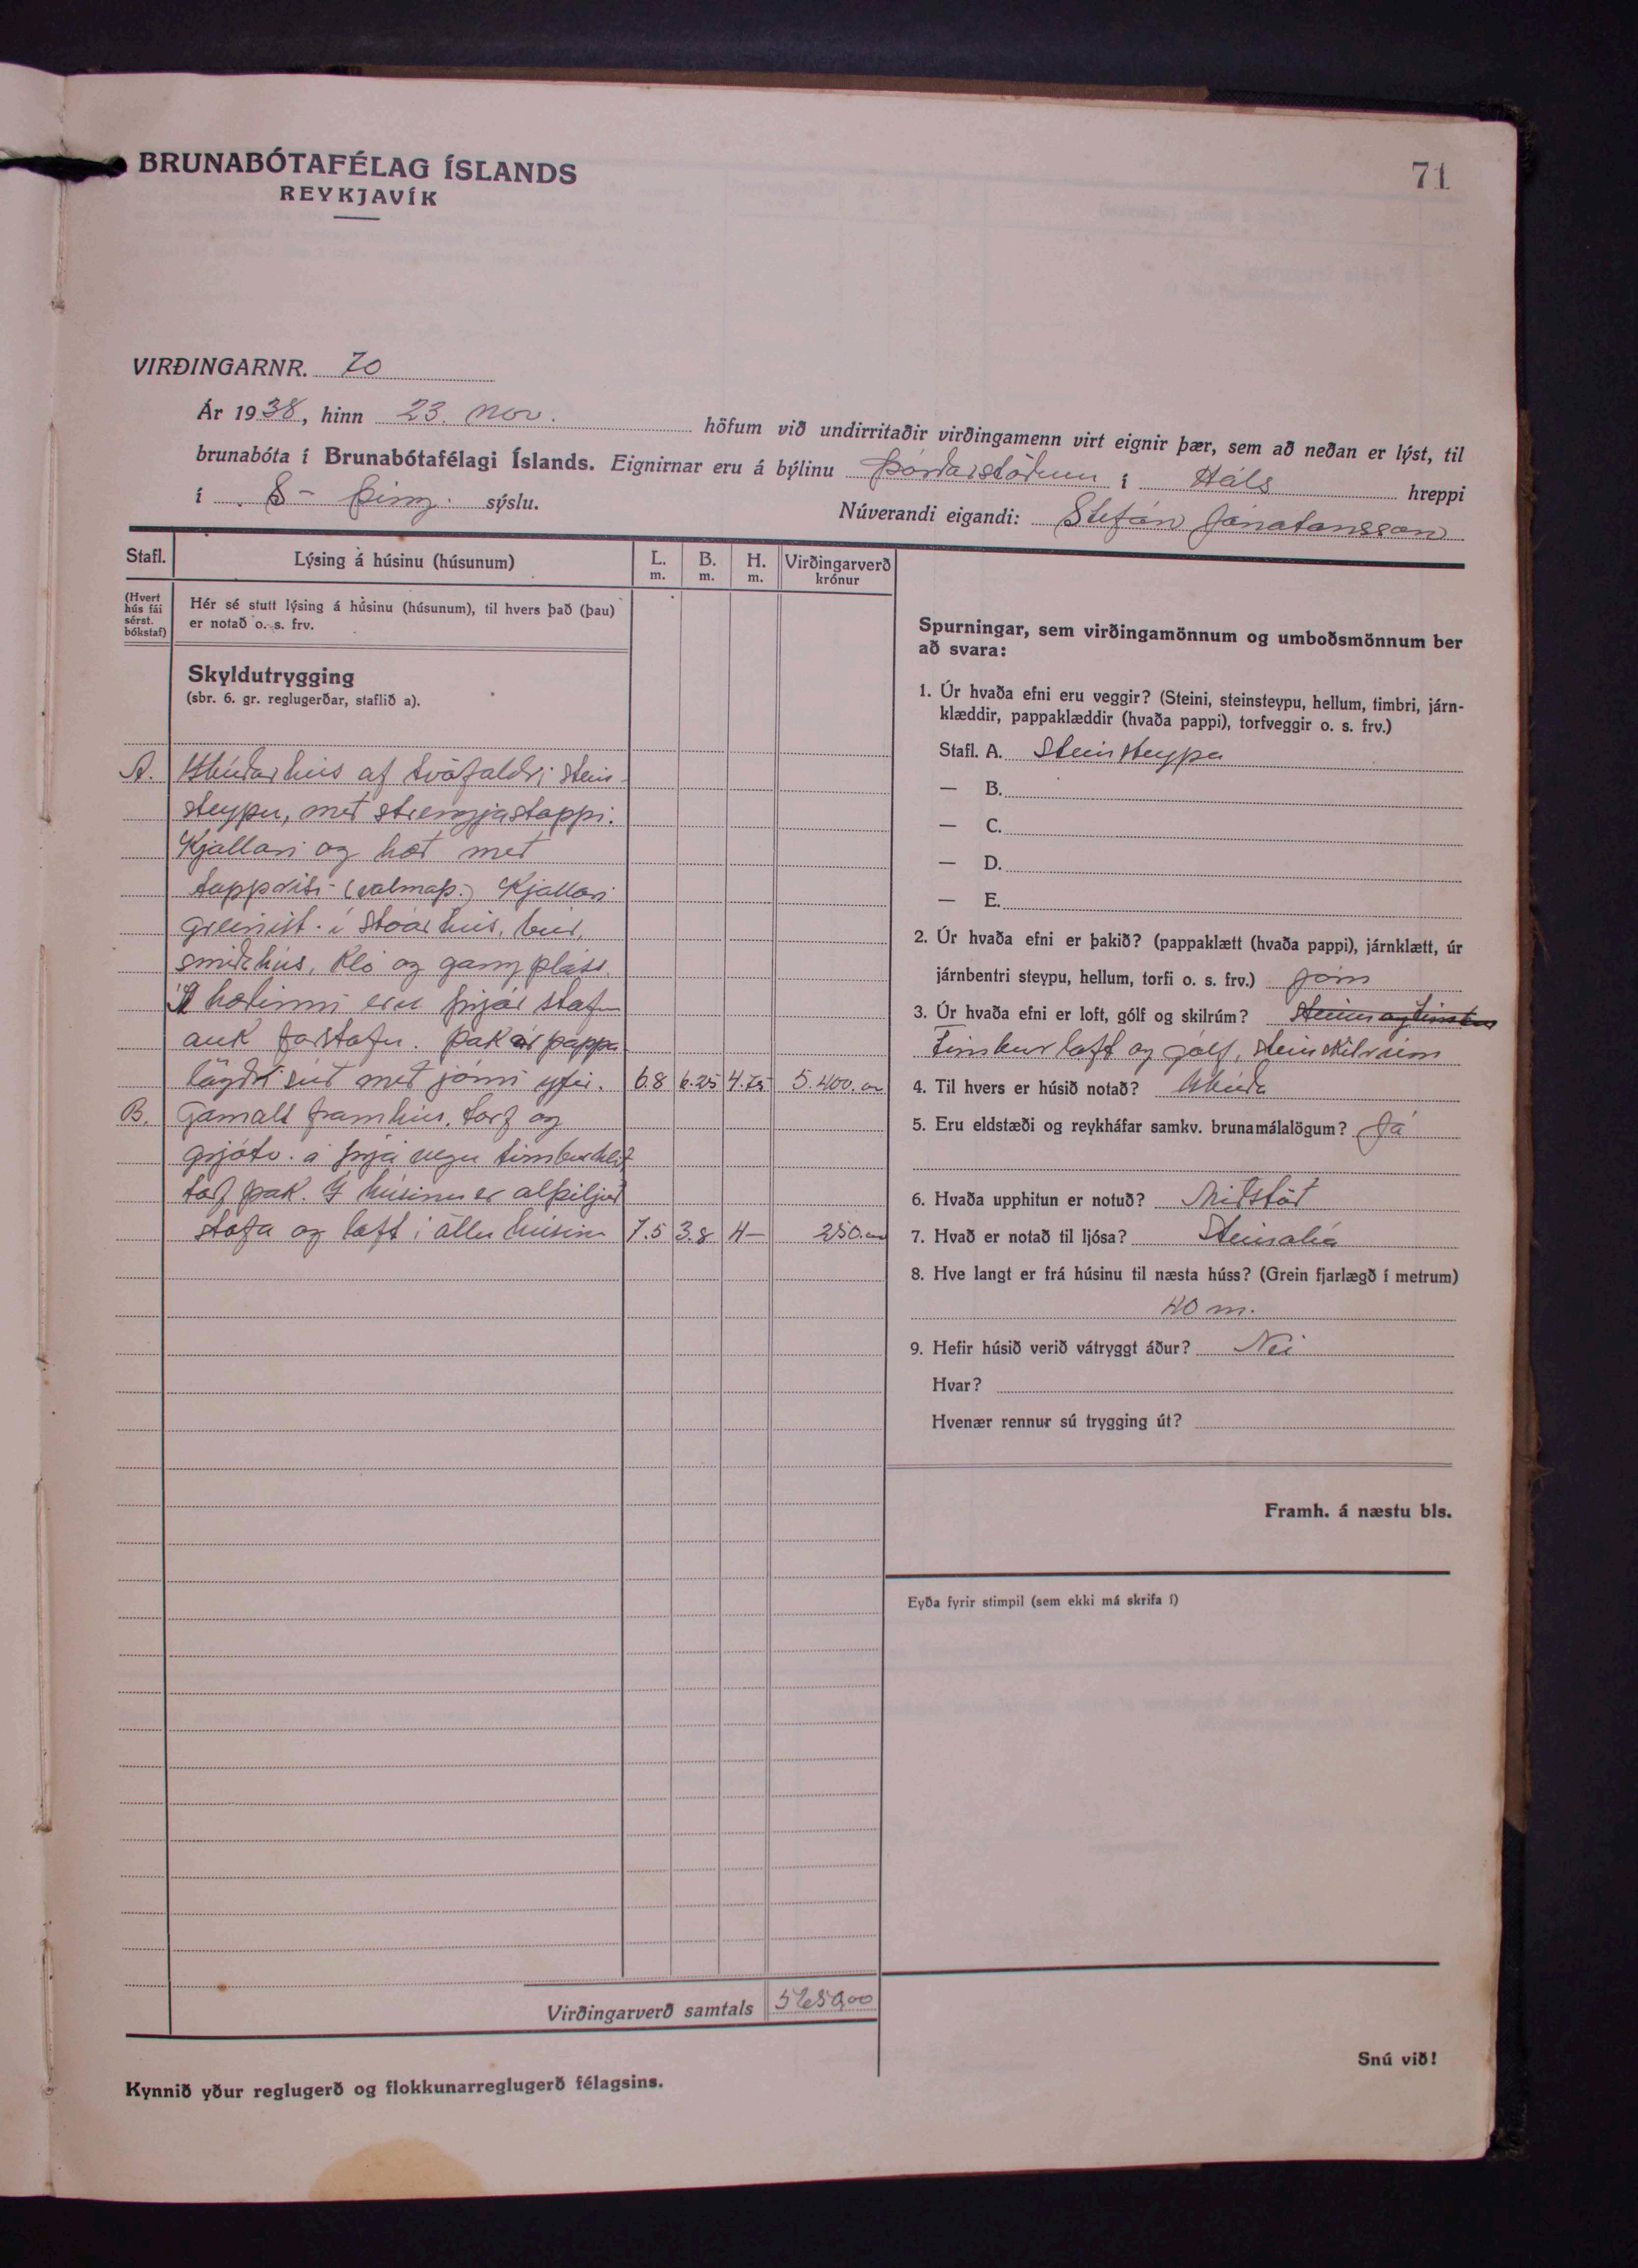 BRUNABÓTAFÉLAG ÍSLANDS
REYKJAVÍK
71
VIRÐINGARNR. 70
Ár 1938, hinn 23. nov. höfum við undirritaðir virðingamenn virt eignir þær, sem að neðan er lýst, til
brunabóta í Brunabótafélagi Íslands. Eignirnar eru á býlinu Þórðarstöðum í Háls hreppi
í S- Þing. sýslu. Núverandi eigandi: Stefán Jónatansson
Stafl. Lýsing á húsinu (húsunum) L. m. B. m. H. m. Virðingarverð krónur
(Hvert hús fái sérst. bókstaf)
Hér sé stutt lýsing á húsinu (húsunum), til hvers það (þau)
er notað o. s. frv.
Skyldutrygging
(sbr. 6. gr. reglugerðar, staflið a).
A. Íbúðarhús af tvöfaldri stein-
steypu, með strengjastoppi.
Kjallari og hæð með
topprisi (valmaþ.) Kjallari
greinist í stóarhús, búr,
smíðahús, kló og gangpláss.
Á hæðinni eru þrjár stofur
auk forstofu. Þak úr pappa
lögðri súð með járni yfir. 6.8 6.25 4.75 5.400.00
B. Gamalt framhús, torf og
grjótv. á þrjá vegu timburhlið
torf þak. Í húsinu er alþiljuð
stofa og loft í öllu húsinu 7.5 3.8 4- 250.00
Virðingarverð samtals 5650,00
Kynnið yður reglugerð og flokkunarreglugerð félagsins.
Spurningar, sem virðingamönnum og umboðsmönnum ber
að svara:
1. Úr hvaða efni eru veggir? (Steini, steinsteypu, hellum, timbri, járn-
klæddir, pappaklæddir (hvaða pappi), torfveggir o. s. frv.)
Stafl. A. Steinsteypu
— B.
— C.
— D.
— E.
2. Úr hvaða efni er þakið? (pappaklætt (hvaða pappi), járnklætt, úr
járnbentri steypu, hellum, torfi o. s. frv.) járn
3. Úr hvaða efni er loft, gólf og skilrúm?
Timbur loft og gólf, steinskilrúm
4. Til hvers er húsið notað? Íbúða
5. Eru eldstæði og reykháfar samkv. brunamálalögum? Já
6. Hvaða upphitun er notuð? Miðstöð
7. Hvað er notað til ljósa? Steinolía
8. Hve langt er frá húsinu til næsta húss? (Grein fjarlægð í metrum)
40 m.
9. Hefir húsið verið vátryggt áður? Nei
Hvar?
Hvenær rennur sú trygging út?
Framh. á næstu bls.
Eyða fyrir stimpil (sem ekki má skrifa í)
Snú við!